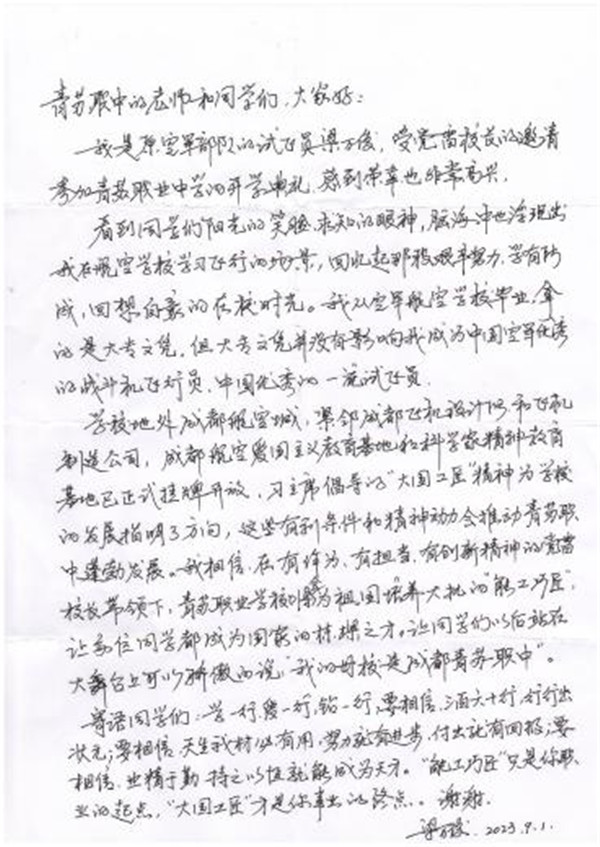 青苏职中的老师和同学们，大家好：
我是原空军部队的试飞员梁万俊，受党雷校长的邀请
参加青苏职业中学的开学典礼，感到荣幸也非常高兴。
看到同学们阳光的笑脸，求知的眼神，脑海中也浮现出
我在航空学校学习飞行的场景，回忆起那段艰辛努力、学有所
成，回想自豪的在校时光。我从空军航空学校毕业，拿
的是大专文凭，但大专文凭并没有影响我成为中国空军优秀
的战斗机飞行员，中国优秀的一流试飞员。
学校地外成都航空城，紧邻成都飞机设计所和飞机
制造公司，成都航空爱国主义教育基地和科学家精神教育
基地已正式挂牌开放，习主席倡导的“大国工匠”精神为学校
的发展指明了方向，这些有利条件和精神动力会推动青苏职
中蓬勃发展。我相信，在有作为、有担当、有创新精神的党雷
校长带领下，青苏职业学校将会为祖国培养大批的“能工巧匠”，
让每位同学都成为国家的栋梁之才。让同学们以后站在
大舞台上可以骄傲的说，“我的母校是成都青苏职中”。
寄语同学们：学一行，爱一行，钻一行；要相信，三百六十行，行行出
状元；要相信，天生我材必有用，努力就有进步，付出就有回报；要
相信，业精于勤，持之以恒就能成为天才。“能工巧匠”只是你职
业的起点，“大国工匠”才是你事业的终点。谢谢。
梁万俊 2023.9.1.